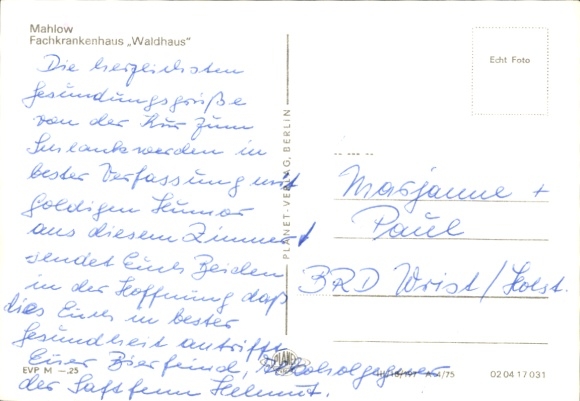 Mahlow
Fachkrankenhaus „Waldhaus"
Die herzlichsten
Gesundungsgrüße
von der Kur zum
Schlankwerden in
bester Verfassung und
goldigen Humor
aus diesem Zimmer
sendet Euch Beiden
in der Hoffnung daß
dies Euch in bester
Gesundheit antrifft
Euer Bierfeind, Alkoholgegner
der Saftfenn Helmut.
EVP M –.25
PLANET-VERLAG, BERLIN
PLANET
Echt Foto
Marjanne +
Paul
BRD Wrist/Holst.
A 4/75
02 04 17 031